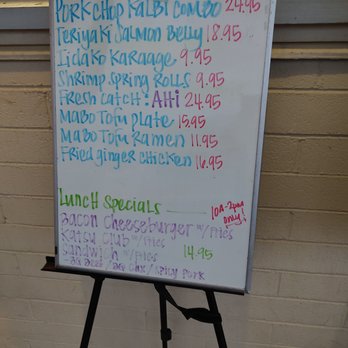 Pork Chop Kalbi Combo 24.95
Teriyaki Salmon Belly 18.95
Iidako Karaage 9.95
Shrimp Spring Rolls 9.95
Fresh Catch: Ahi 24.95
Mabo Tofu Plate 15.95
Mabo Tofu Ramen 11.95
Fried Ginger Chicken 16.95
Lunch Specials 10A-2pm only!
Bacon Cheeseburger w/Fries
Katsu Club w/Fries 14.95
Sandwich w/Fries
/ Spicy Pork